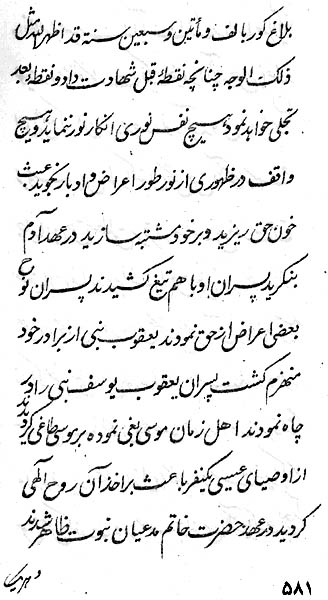 بلاغ كور بالف و مأتين و سبعين سنة قد اظهر الله مثل
ذلك الوجه چنانچه نقطهٔ قبل شهادت داد و نقطهٔ بعد
تجلی خواهد نمود هیچ نفس نوری انکار نور ننماید و هیچ
واقف در ظهوری از نور طور اعراض و ادبار نجوید عبث
خون حق ریزید و بر خود مشتبه سازید در عهد آدم
بنگرید پسران او با هم تیغ کشیدند پسران نوح
بعضی اعراض از حق نمودند یعقوب نبی از برادر خود
منهزم گشت پسران یعقوب یوسف نبی را در
چاه نمودند اهل زمان موسی بغی نموده بر موسی طاغی گردیدند
از اوصیای عیسی یکنفر باعث بر اخذ آن روح الهی
گردید در عهد حضرت خاتم مدعیان نبوت ظاهر شدند
و هر یک
۵۸۱